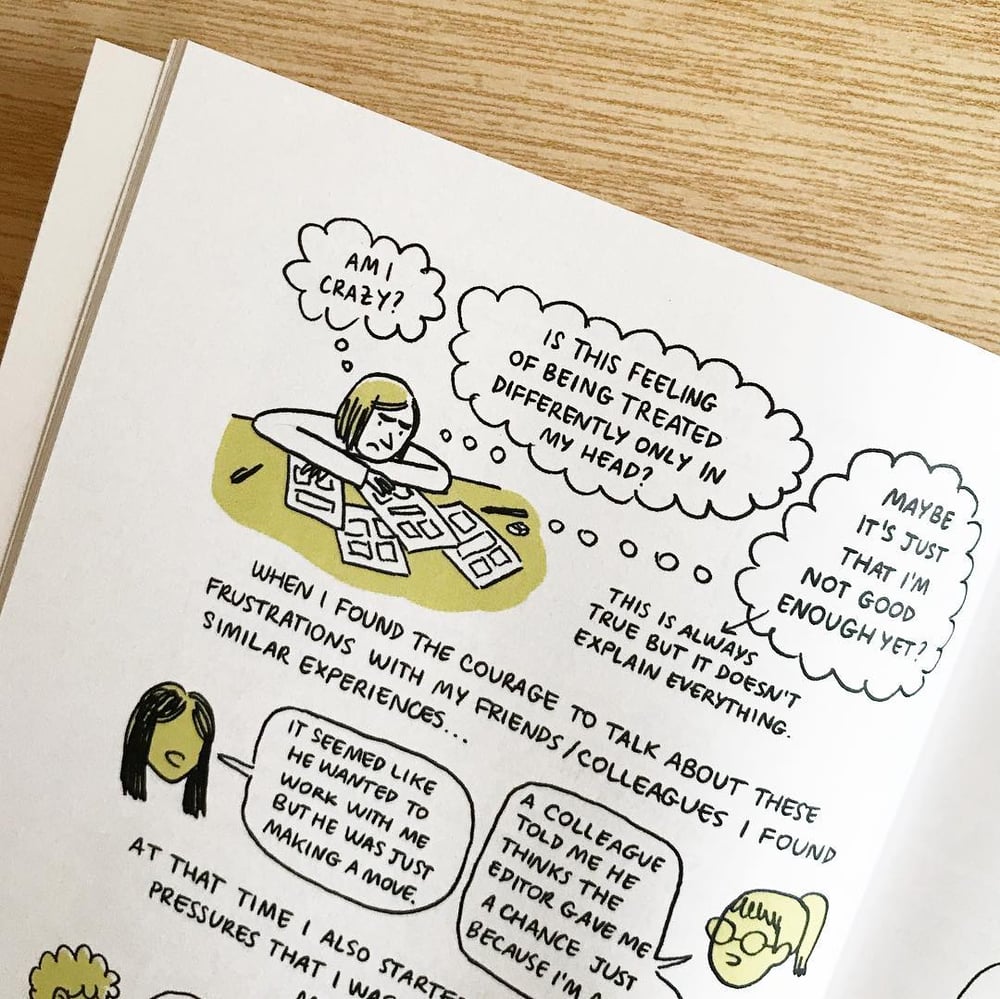 AM I
CRAZY?
IS THIS FEELING
OF BEING TREATED
DIFFERENTLY ONLY IN
MY HEAD?
MAYBE
IT'S JUST
THAT I'M
NOT GOOD
ENOUGH YET?
THIS IS ALWAYS
TRUE BUT IT DOESN'T
EXPLAIN EVERYTHING.
WHEN I FOUND THE COURAGE TO TALK ABOUT THESE
FRUSTRATIONS WITH MY FRIENDS/COLLEAGUES I FOUND
SIMILAR EXPERIENCES...
IT SEEMED LIKE
HE WANTED TO
WORK WITH ME
BUT HE WAS JUST
MAKING A MOVE.
A COLLEAGUE
TOLD ME HE
THINKS THE
EDITOR GAVE ME
A CHANCE JUST
BECAUSE I'M
AT THAT TIME I ALSO
PRESSURES THAT I